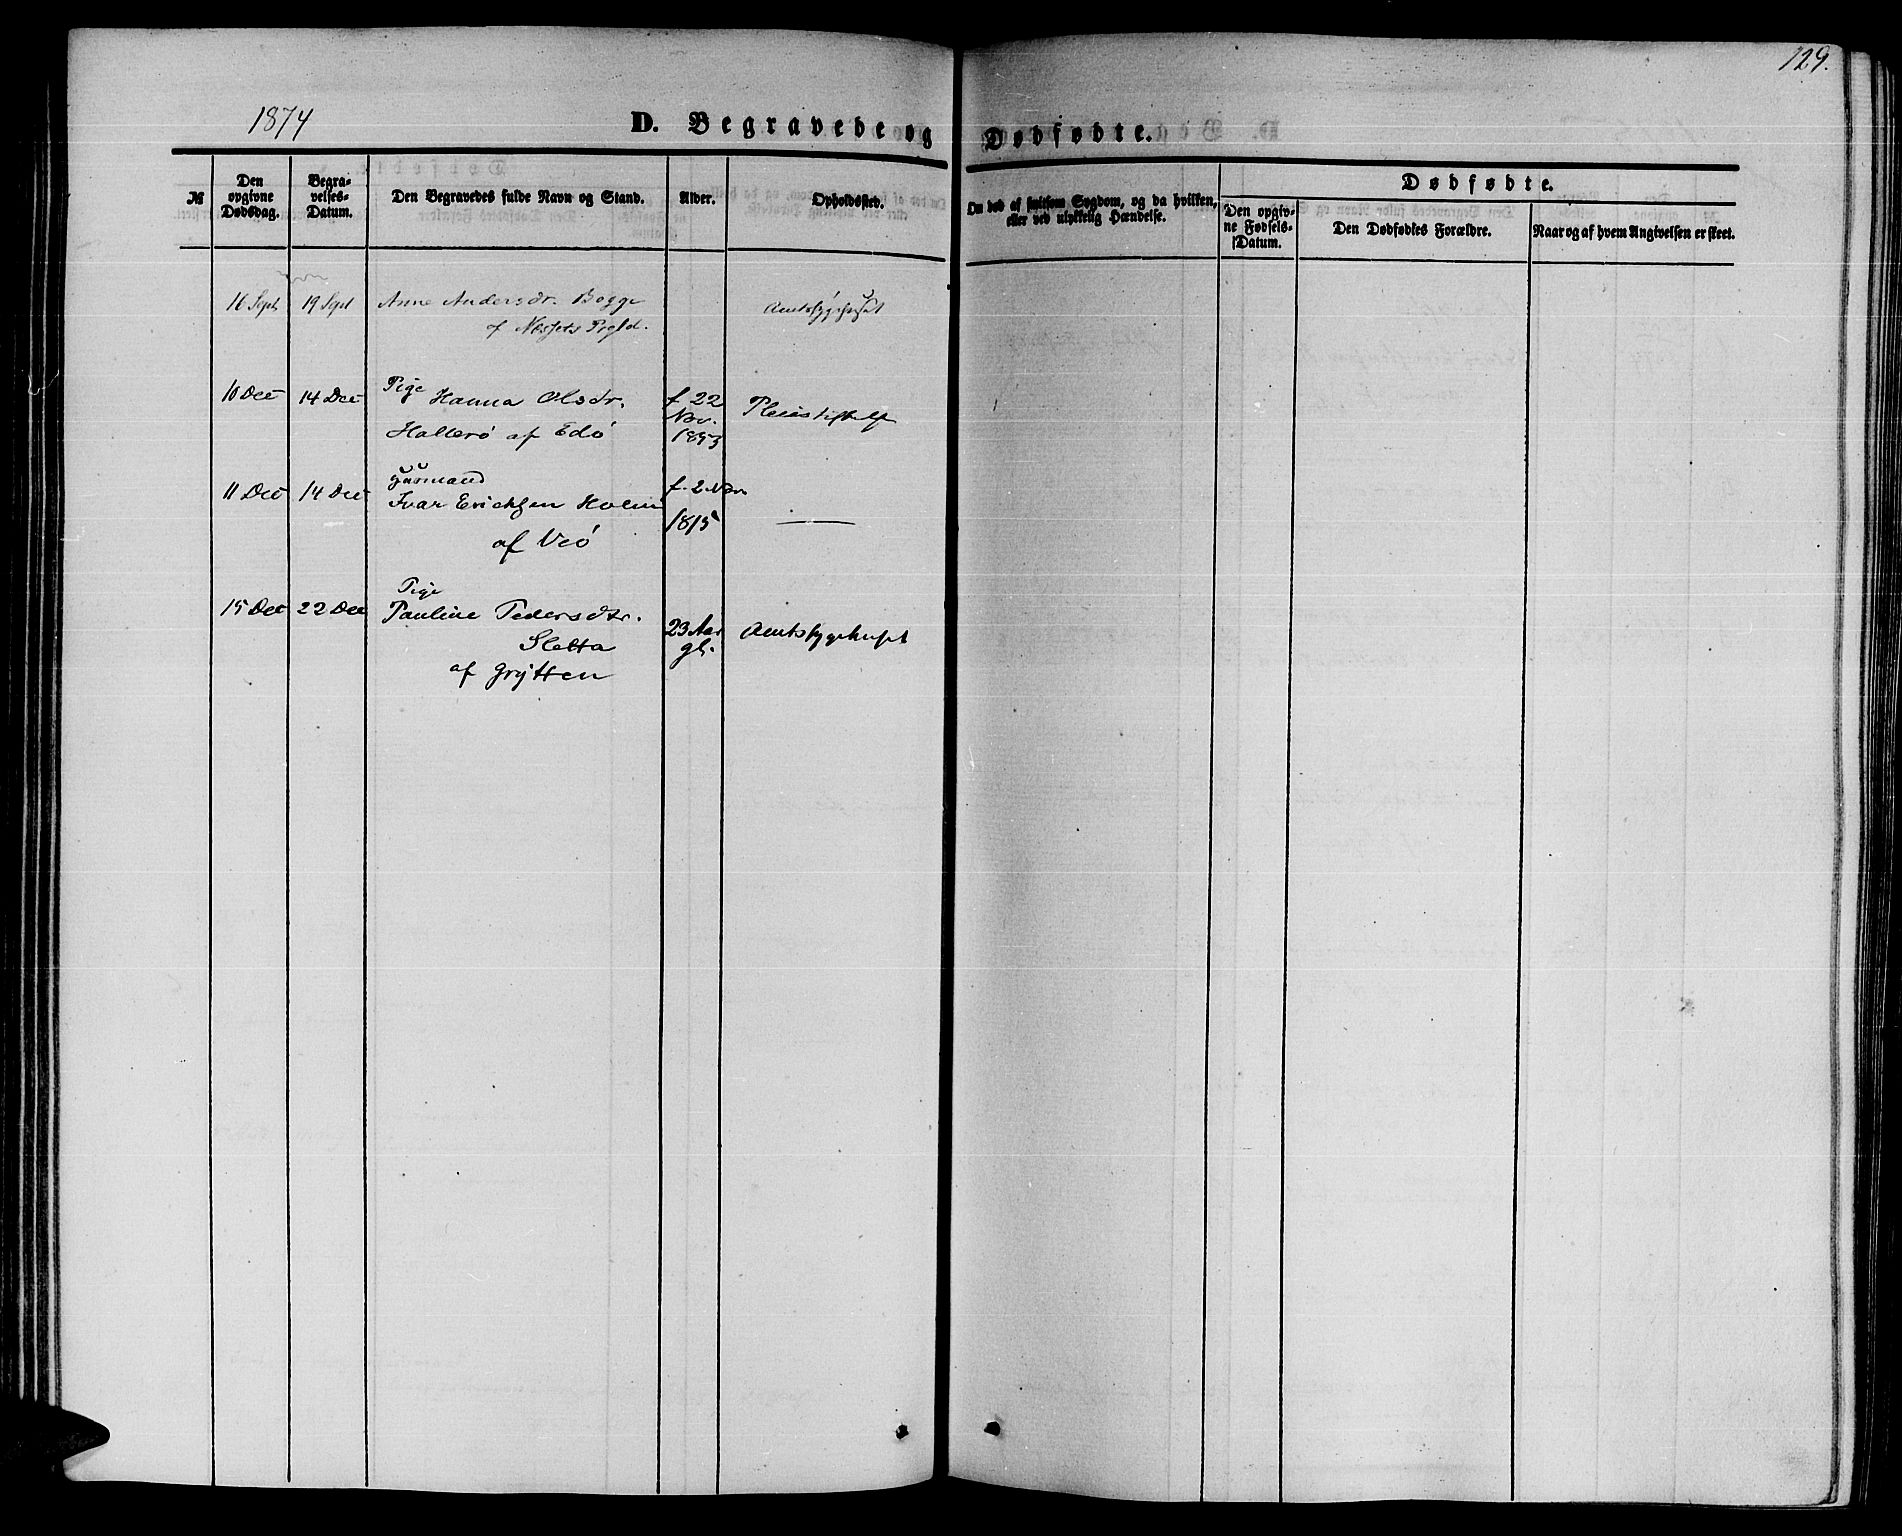 129.
1874
D. Begravede og Dødfødte.
№
Den opgivne Dødsdag.
Begra-
velses-
Datum.
Den Begravedes fulde Navn og Stand.
Alder.
Opholdssted.
Om død af smitsom Sygdom, og da hvilken,
eller ved ulykkelig Hændelse.
Dødfødte.
Den opgiv-
ne Fødsels-
Datum.
Den Dødfødtes Forældre.
Naar og af hvem Angivelsen er skeet.
16 Sept 19 Sept Anne Andersdr. Bogge Amtssygehuset
af Nessets Prgld.
Pige
10 Dec 14 Dec Hanna Olsdr. f. 22 Pleiestiftelse
Nov.
Hallerø af Edø 1853
Gaarmand
11 Dec 14 Dec Ivar Erichsen Holm f. 2 Nov. —
af Veø 1815
Pige
15 Dec 22 Dec Pauline Pedersdtr. 23 Aar Amtssygehuset
Sletta gl.
af Grytten